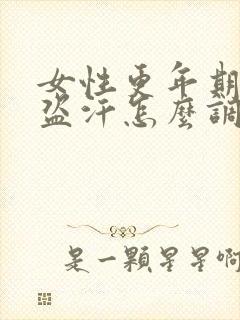 女性更年期
盜汗怎麼調
是一顆星星啊